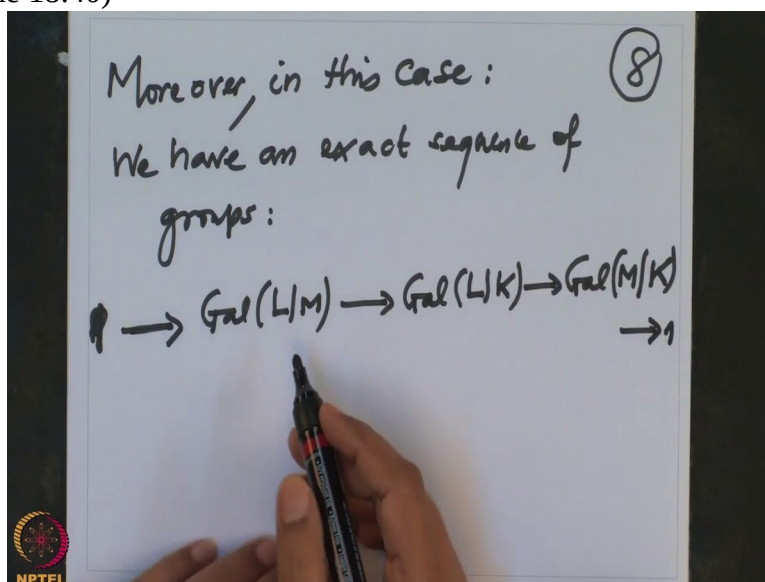 Moreover, in this case:
8
We have an exact sequence of
groups:
1 → Gal(L|M) → Gal(L|K) → Gal(M|K)
→ 1
NPTEL